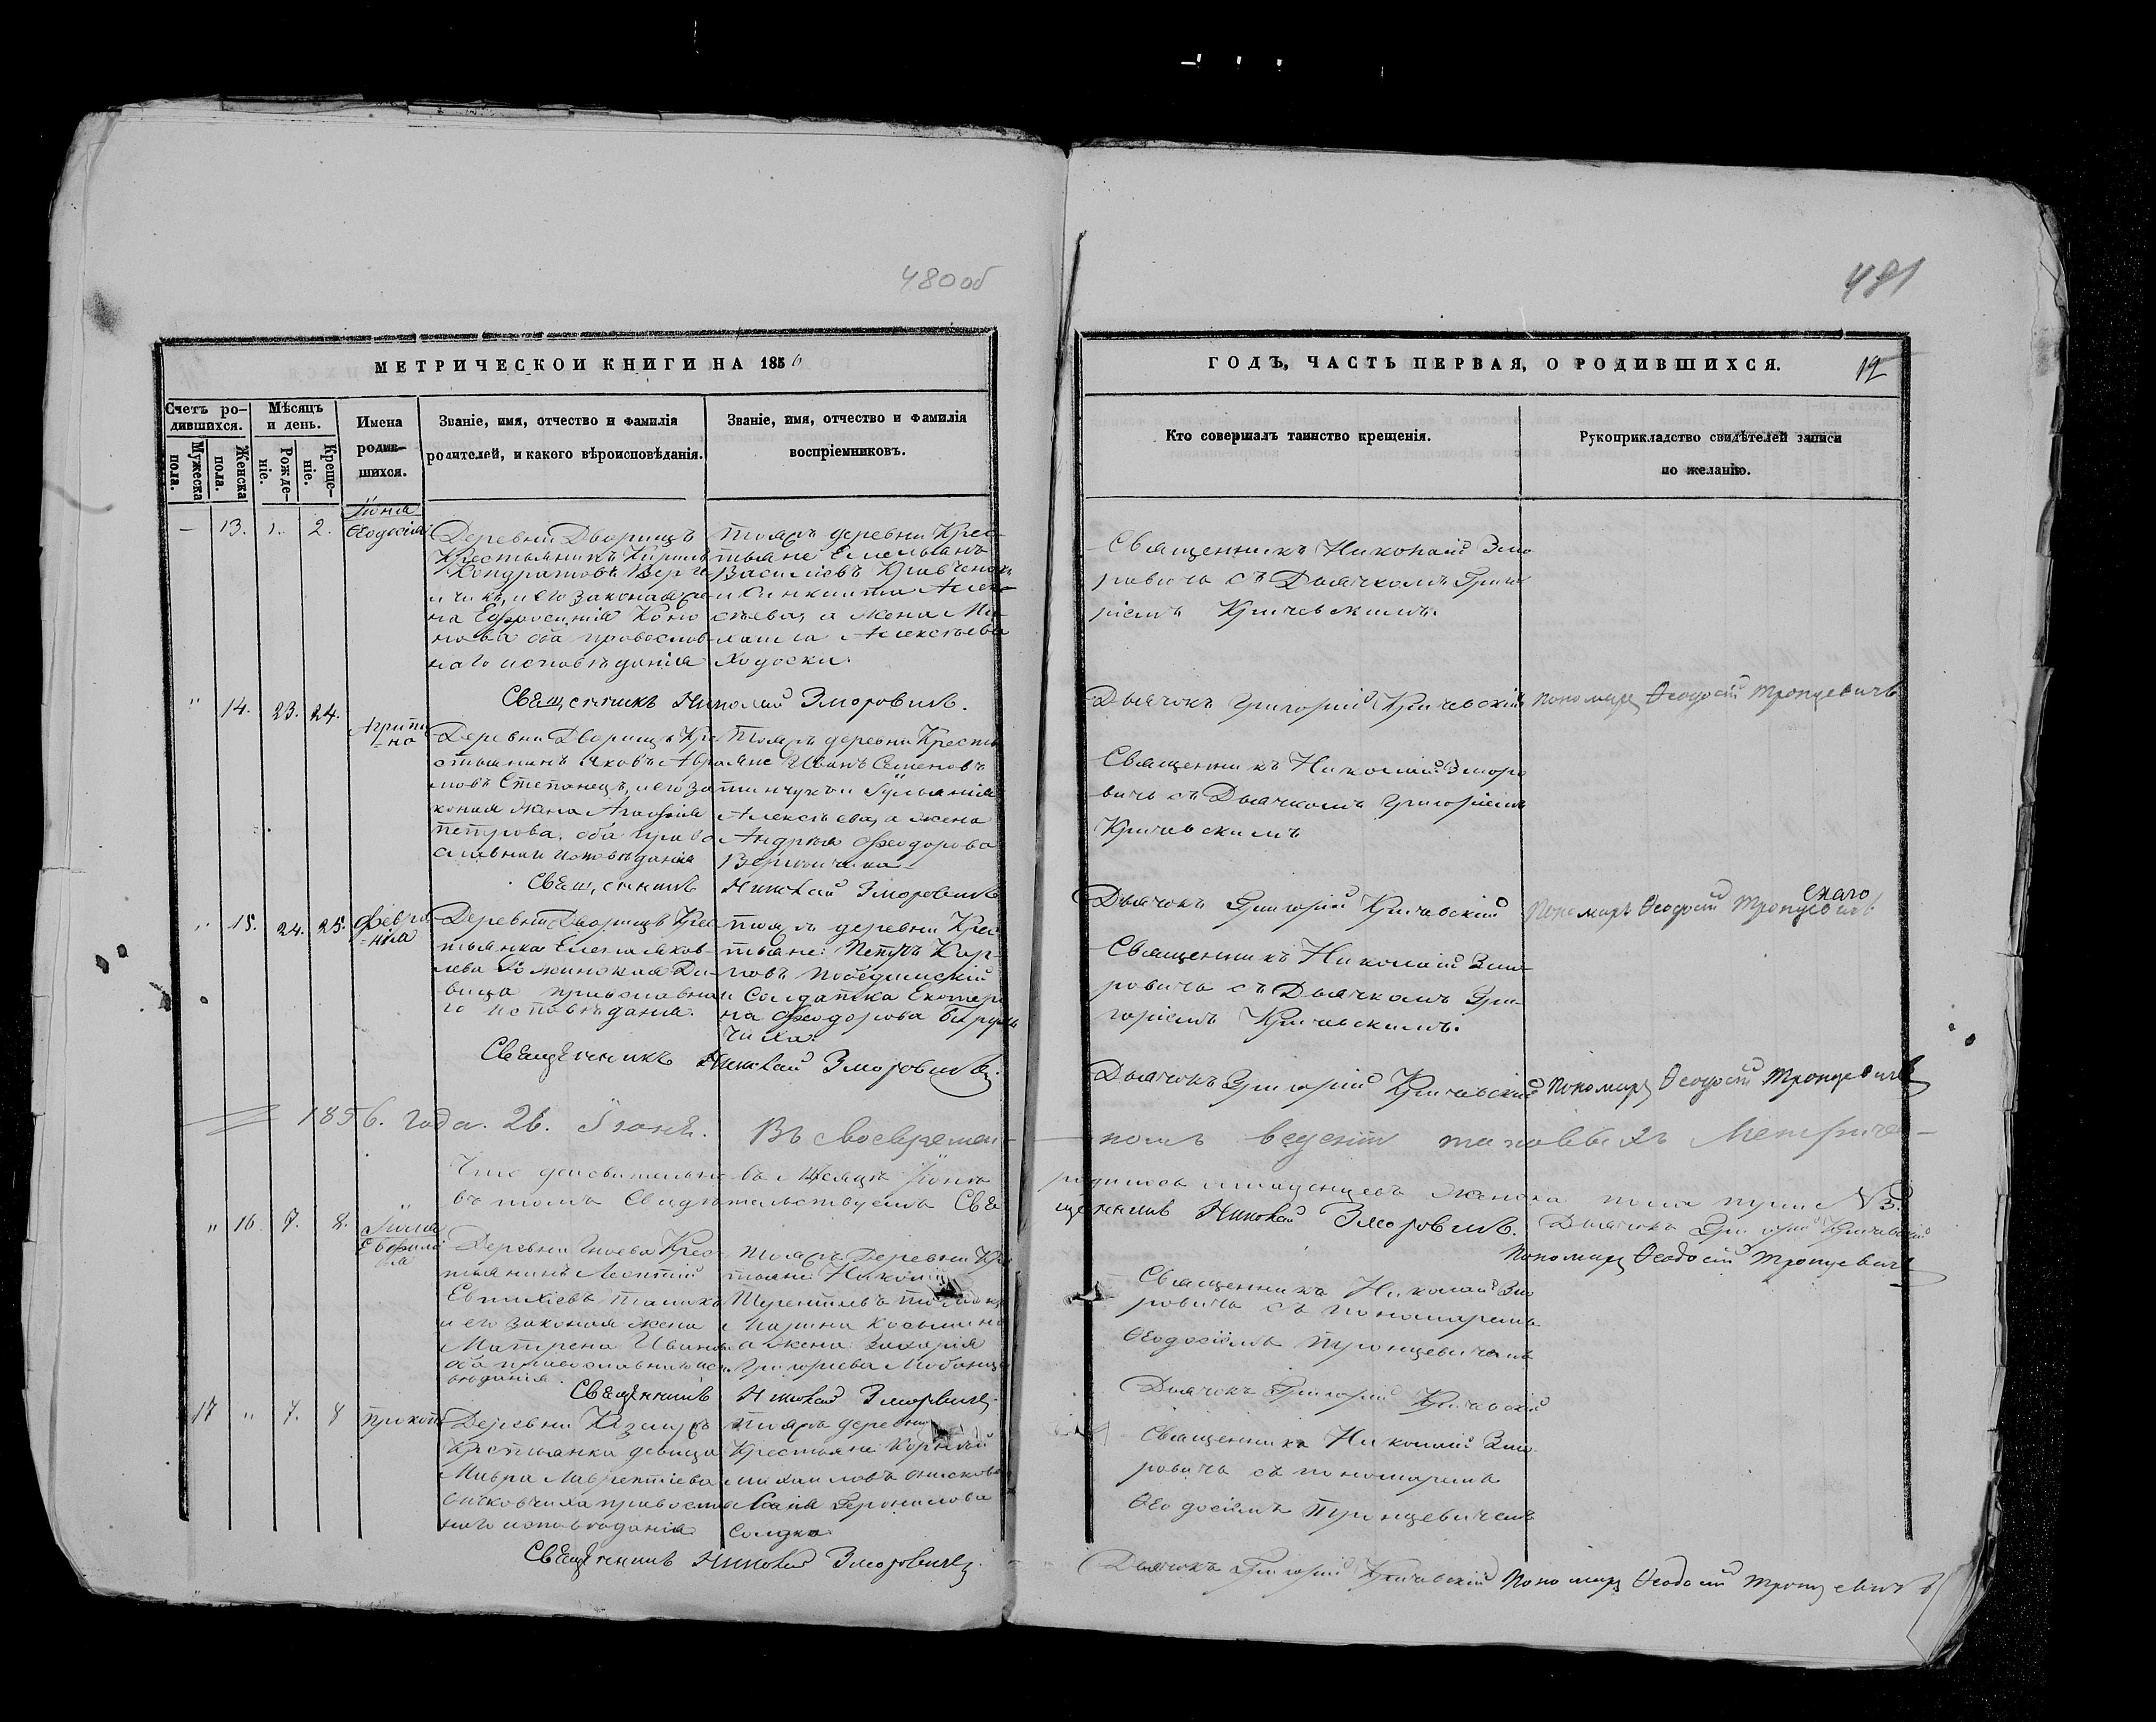 480 об
481
МЕТРИЧЕСКОИ КНИГИ НА 1856
ГОДЪ, ЧАСТЬ ПЕРВАЯ, О РОДИВШИХСЯ.
12
Счетъ ро-
дившихся.
Мужеска
пола.
Женска
пола.
Мѣсяцъ
и день.
Рожде-
ніе.
Креще-
ніе.
Имена
родив-
шихся.
Званіе, имя, отчество и фамилія
родителей, и какого вѣроисповѣданія.
Званіе, имя, отчество и фамилія
воспріемниковъ.
Кто совершалъ таинство крещенія.
Рукоприкладство свидѣтелей записи
по желанію.
— 13. 1. 2.
Іюня
Ѳеодосія
Деревни Дворищъ
Крестьянинъ Кирилъ
Кондратовъ
и его законая же
на Ефросинія
нова оба православ
наго исповѣданія
Тояжъ деревни Крес
тьяне Емельянъ
Василіевъ Кравченокъ
Алек
сѣева, а жена
Алексѣева
Ходоски.
Священникъ Николай Змо
ровичь съ Дьячкомъ Григо
ріемъ Кричевскимъ.
Священникъ Николай Зморовичъ.
Дьячокъ Григорій Кричевскій Пономарь Ѳеодосій Тронцевичъ
" 14. 23. 24.
Агрипи
на
Деревни Дворищъ Кре
стьянинъ Яковъ Авра
мовъ Степанецъ, и его за
коная жена Агафія
Петрова. оба право
славнаи исповѣданія
Тояжъ деревни Кресть
яне Иванъ Семеновъ
Алексѣева, а жена
Андрея Феодорова
Священникъ Николай Зморо
вичь съ Дьячкомъ Григоріемъ
Кричевскимъ
Священникъ Николай Зморовичъ
Дьячокъ Григорій Кричевскій Пономарь Ѳеодосій Тронцевичъ
" 15. 24. 25.
Феврo
нія
Деревни Дворищъ Крес
тьянка Елена Яков
лева
вица православна
го исповѣданія.
тояжъ деревни Крес
тьяне: Петръ Кар
повъ Победимскій
и Солдатка Екатери
на Феодорова
чиха.
Священникъ Николай Змо
ровичь съ Дьячкомъ Гри
горіемъ Кричевскимъ.
Священникъ Николай Зморовичъ.
Дьячокъ Григорій Кричевскій Пономарь Ѳеодосій Тронцевичъ
1856. года. 26. Іюня. Въ своевремен-
номъ веденіи таковыхъ Метриче-
Что действительно въ мѣсяцѣ Іюнѣ
родилось младенцевъ женска пола три № 3.
въ томъ свидѣтельствуемъ Свя
щенникъ Николай Зморовичъ. Дьячокъ Григорій Кричевскій
Пономарь Ѳеодосій Тронцевичъ
" 16. 7. 8.
Іюля
Евфимі
я
Деревни Крес
тьянинъ Леонтій
Евтихіевъ
и его законая жена
Матрена Иванова
оба православнаго исп
овѣданія.
Тояжъ Деревни Кре
тьяне Николай
Терентіевъ
Марина Косьмина
а жена Захарія
Григорієва
Священникъ Николай Змо
ровичь съ пономаремъ
Ѳеодосіемъ Тронцевичемъ
Священникъ Николай Зморовичъ
Дьячокъ Григорій Кричевскій
17 " 7. 8
Прокопі
Деревни
Крестьянка девица
Мавра Лаврентіева
православ
наго исповѣданія
Тояжъ деревни
Крестьяне Корнилій
Михаиловъ
Солдка.
Священникъ Николай Змо
ровичь съ пономаремъ
Ѳеодосіемъ Тронцевичемъ
Священникъ Николай Зморовичъ.
Дьячокъ Григорій Кричевскій Пономарь Ѳеодосій Тронцевичъ